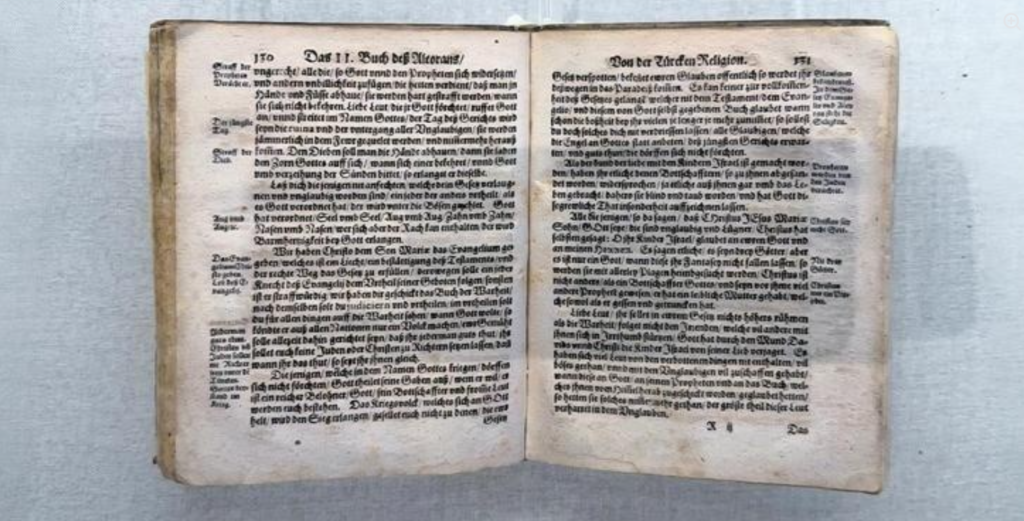 130 Das II. Buch deß Alcorans/
Straff der
Propheten
Verächter.
vngerecht/ alle die/ so Gott vnnd den Propheten sich widersetzen/
vnd andern vnbillichkeit zufügen/ die heilen verdient/ daß man jn
Hände vnd Füsse abhaue/ sie werden hart gestrafft werden/ wann
sie sich nicht bekehren. Liebe Leut die jr Gott förchtet/ ruffet Gott
an/ vnnd streitet im Namen Gottes/ der Tag deß Gerichts wird
Der jüngste
Tag.
seyn die ruina vnd der vntergang aller Vnglaubigen/ sie werden
jämmerlich in dem Fewr gequelet werden/ vnd nimmermehr herauß
Straff der
Dieb.
kommen. Den Dieben soll man die Hände abhauen/ dann sie laden
den Zorn Gottes auff sich/ wann sich einer bekehret/ vnnd Gott
vmb verzeihung der Sünden bittet/ so erlanget er dieselbe.
Laß dich die jenigen nit anfechten/ welche dein Gesetz verlaug-
nen vnd vnglaubig worden sind/ ein jeder der anders vrtheilt/ als
es Gott verordnet hat/ der wird vnter die Bösen gezehlet. Gott
Aug vmb
Aug/ rc.
hat verordnet/ Seel vmb Seel/ Aug vmb Aug/ Zahn vmb Zahn/
Nasen vmb Nasen/ wer sich aber der Rach kan enthalten/ der wird
Barmhertzigkeit bey Gott erlangen.
Wir haben Christo dem Son Mariæ das Evangelium ge-
geben/ welches ist ein Liecht/ ein bestättigung deß Testaments/ vnd
der rechte Weg das Gesetz zu erfüllen/ derowegen solle ein jeder
Knecht deß Evangelij dem Vrtheil seiner Geboten folgen/ sonsten
ist er straffwürdig/ wir haben dir geschickt das Buch der Warheit/
nach demselben solt du judiciern vnd vrtheilen/ im vrtheilen solt
du für allen dingen auff die Warheit sehen/ wann Gott wolte/ so
köndte er auß allen Nationen nur ein Volck machen/ ewr Gemüht
solle allezeit dahin gerichtet seyn/ daß jhr jederman guts thut/ jhr
sollet euch keine Juden oder Christen zu Richtern setzen lassen/ daß
wann jhr das thut/ so seyt jhr jhnen gleich.
Die jenigen/ welche in dem Namen Gottes kriegen/ dörffen
sich nicht förchten/ Gott theilet seine Gaben auß/ wem er wil/ er
ist ein reicher Belohner/ Gott/ sein Bottschaffter vnd fromme Leut
werden euch beystehen. Das Kriegsvolck/ welches sich an Gott
helt/ wird den Sieg erlangen/ gesellet euch nicht zu denen/ die ewr
Gesetz
Von der Türcken Religion. 131
Gesetz verspotten/ bekehret ewren Glauben öffentlich so werdet jhr
deßwegen in das Paradeiß kommen. Es kan keiner zur vollkommen-
heit deß Gesetzes gelangen/ welcher nit dem Testament/ dem Evan-
gelio/ vnd diesem von Gott selbst gegebenen Buch glaubet/ wann
schon die boßheit bey jhr vielen je lenger je mehr zunimmet/ so sollst
du doch solches dich nit verdriessen lassen/ alle Glaubigen/ welche
die Engel an Gottes statt anbeten/ deß jüngsten Gerichts erwar-
ten/ vnd guts thun/ die dörffen sich nicht förchten.
Als der bund der liebe mit den Kindern Israel ist gemacht wor-
Propheten
den/ haben sie etliche deinen Bottschafftern/ so zu jhnen abgesan-
det worden/ widersprochen/ ja etliche auß jhnen gar vmb das Le-
ben gebracht/ dahero sie blind vnd taub worden/ vnd hat Gott di-
se grewliche That in sonderheit auffzeichnen lassen.
Alle die jenigen/ so da sagen/ daß CHristus JEsus Mariæ
Sohn/ GOtt seye/ die sind vnglaubig vnd Lügner. Christus hat
selbsten gesagt: O jhr Kinder Israel/ glaubet an ewren Gott vnd
an meinen Herren. Es sagen etliche/ es seyn drey Götter/ aber
Nit drey
Götter.
es ist nur ein Gott/ wann diese jhr Fantasey nicht fallen lassen/ so
werden sie mit allerley Plagen heimbgesucht werden/ Christus ist
nicht anders/ als ein Bottschaffter Gottes/ vnd seyn vor jhme viel
andere Propheten gewesen/ er hat ein leibliche Mutter gehabt/ wel-
che sowol als er gessen vnd getruncken hat.
Liebe Leut/ jhr sollet in ewrem Gesetz nichts höhers rühmen
als die Warheit/ folget nicht den Irrenden/ welche vil andere mit
jhnen sich in Irrthumb stürtzen/ Gott hat durch den Mund Da-
vids vnnd Christi die Kinder Israel von seiner Lieb verjaget. Es
haben sich viel Leut von den verbottenen dingen nit enthalten/ vil
böses gethan/ vnd mit den Vnglaubigen vil zuschaffen gehabt/
wann diese an Gott/ an seinen Propheten vnd an das Buch/ wel-
ches jhnen vom Himmel herab zugeschickt worden/ geglaubet hetten/
so hetten sie solches nimmermehr gethan/ der gröste theil dieser Leut
verharret in dem Vnglauben.
R ij Das